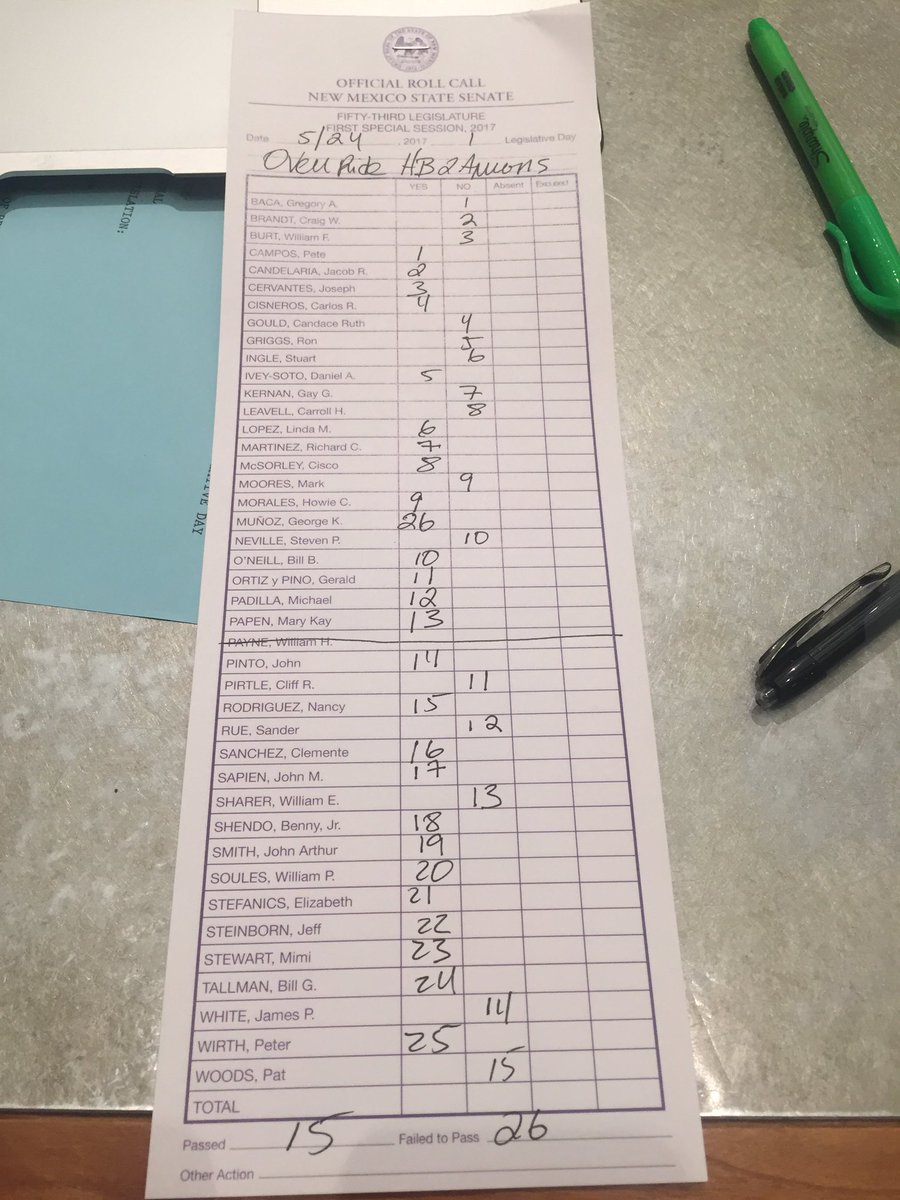 OFFICIAL ROLL CALL
NEW MEXICO STATE SENATE
FIFTY-THIRD LEGISLATURE
FIRST SPECIAL SESSION, 2017
Date 5/24, 2017 1 Legislative Day
Over Ride HB2
YES NO Absent Excused
BACA, Gregory A. 1
BRANDT, Craig W. 2
BURT, William F. 3
CAMPOS, Pete 1
CANDELARIA, Jacob R. 2
CERVANTES, Joseph 3
CISNEROS, Carlos R. 4
GOULD, Candace Ruth 4
GRIGGS, Ron 5
INGLE, Stuart 6
IVEY-SOTO, Daniel A. 5
KERNAN, Gay G. 7
LEAVELL, Carroll H. 8
LOPEZ, Linda M. 6
MARTINEZ, Richard C. 7
McSORLEY, Cisco 8
MOORES, Mark 9
MORALES, Howie C. 9
MUÑOZ, George K. 26
NEVILLE, Steven P. 10
O'NEILL, Bill B. 10
ORTIZ y PINO, Gerald 11
PADILLA, Michael 12
PAPEN, Mary Kay 13
PAYNE, William H.
PINTO, John 14
PIRTLE, Cliff R. 11
RODRIGUEZ, Nancy 15
RUE, Sander 12
SANCHEZ, Clemente 16
SAPIEN, John M. 17
SHARER, William E. 13
SHENDO, Benny, Jr. 18
SMITH, John Arthur 19
SOULES, William P. 20
STEFANICS, Elizabeth 21
STEINBORN, Jeff 22
STEWART, Mimi 23
TALLMAN, Bill G. 24
WHITE, James P. 14
WIRTH, Peter 25
WOODS, Pat 15
TOTAL
Passed 15 Failed to Pass 26
Other Action
Sharpie